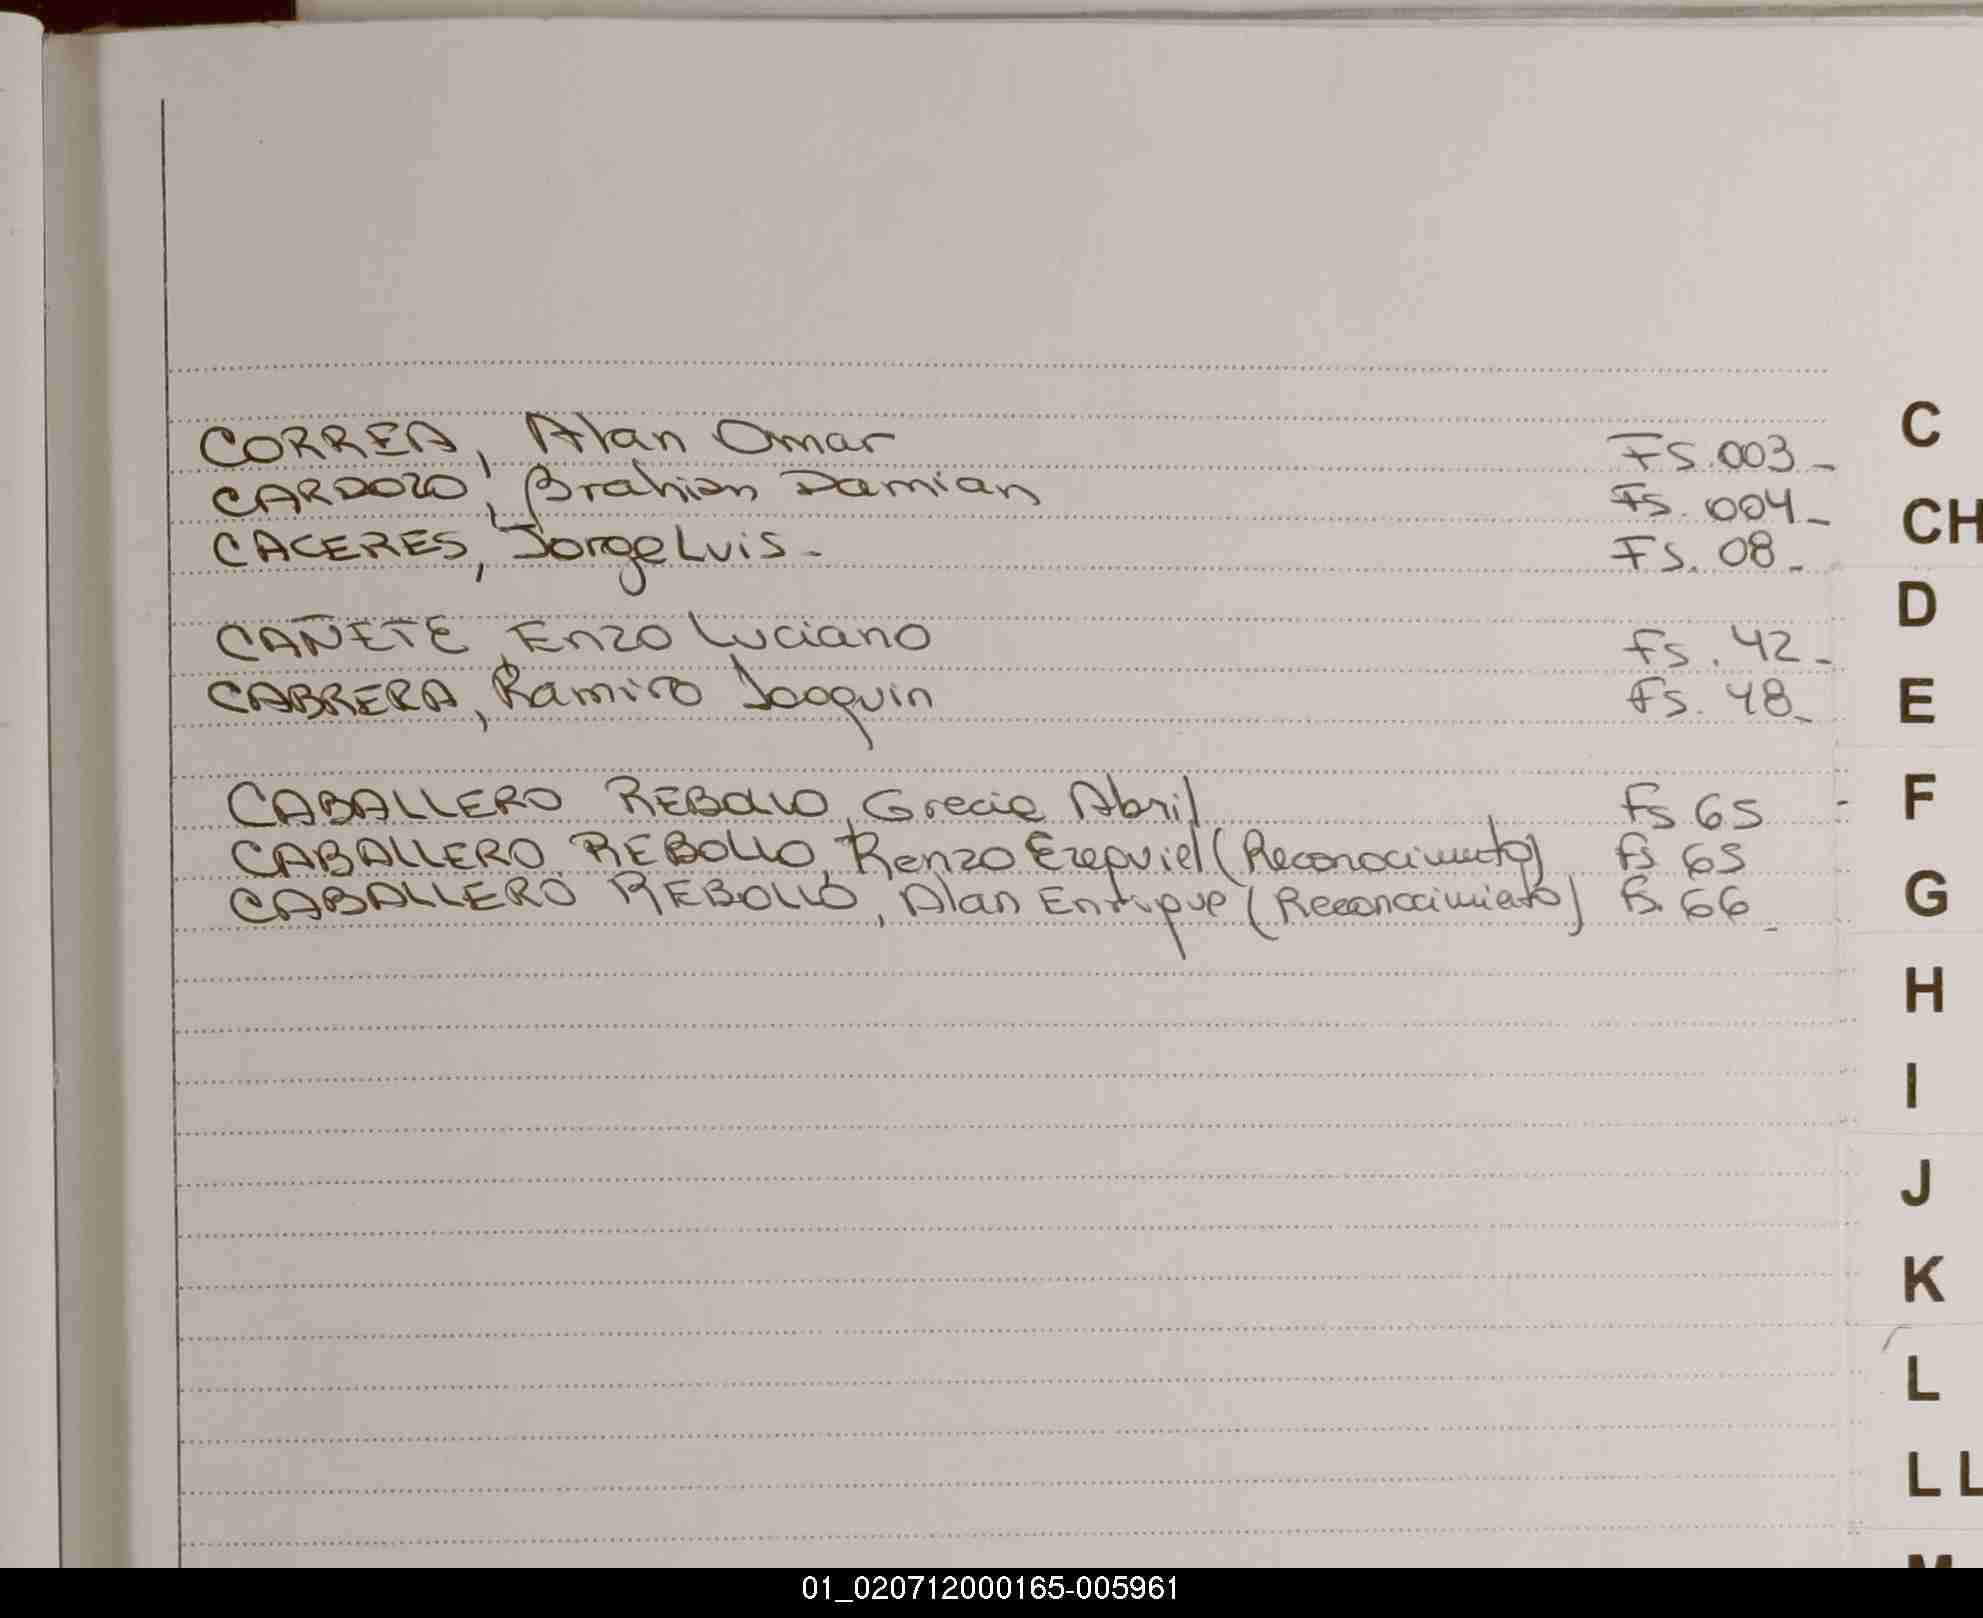 CORREA, Alan Omar Fs. 003-
CARDOZO, Brahian Damian Fs. 004-
CACERES, Jorge Luis- Fs. 08-
CAÑETE, Enzo Luciano Fs. 42-
CABRERA, Ramiro Joaquin Fs. 48-
CABALLERO REBOLLO, Grecia Abril Fs 65
CABALLERO REBOLLO, Renzo Ezequiel (Reconocimiento) Fs 65
CABALLERO REBOLLO, Alan Enrique (Reconocimiento) Fs. 66-
C
CH
D
E
F
G
H
I
J
K
L
LL
M
01_020712000165-005961